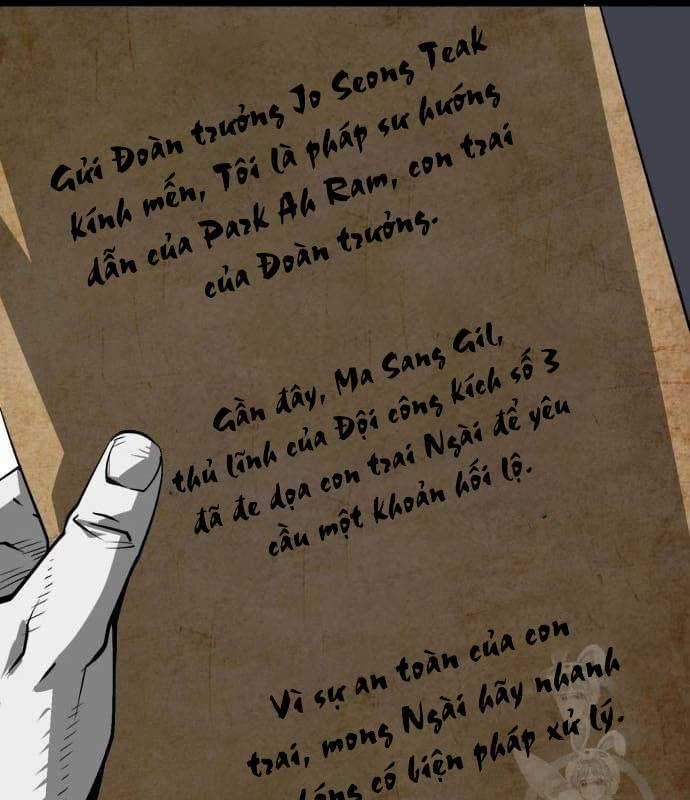 Gửi Đoàn trưởng Jo Seong Teak
kính mến, Tôi là pháp sư hướng
dẫn của Park Ah Ram, con trai
của Đoàn trưởng.
Gần đây, Ma Sang Gil,
thủ lĩnh của Đội công kích số 3
đã đe dọa con trai Ngài để yêu
cầu một khoản hối lộ.
Vì sự an toàn của con
trai, mong Ngài hãy nhanh
chóng có biện pháp xử lý.